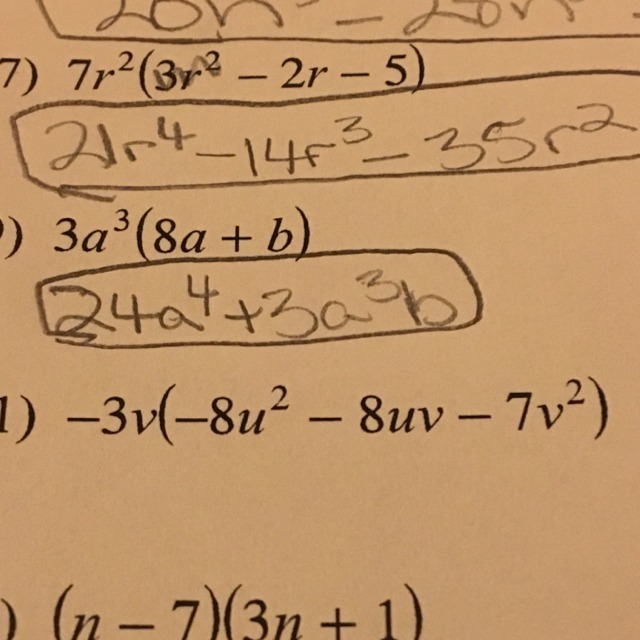 20n – 20n
7) 7r²(3r² – 2r – 5)
21r⁴ – 14r³ – 35r²
) 3a³(8a + b)
24a⁴ + 3a³b
1) –3v(–8u² – 8uv – 7v²)
) (n – 7)(3n + 1)